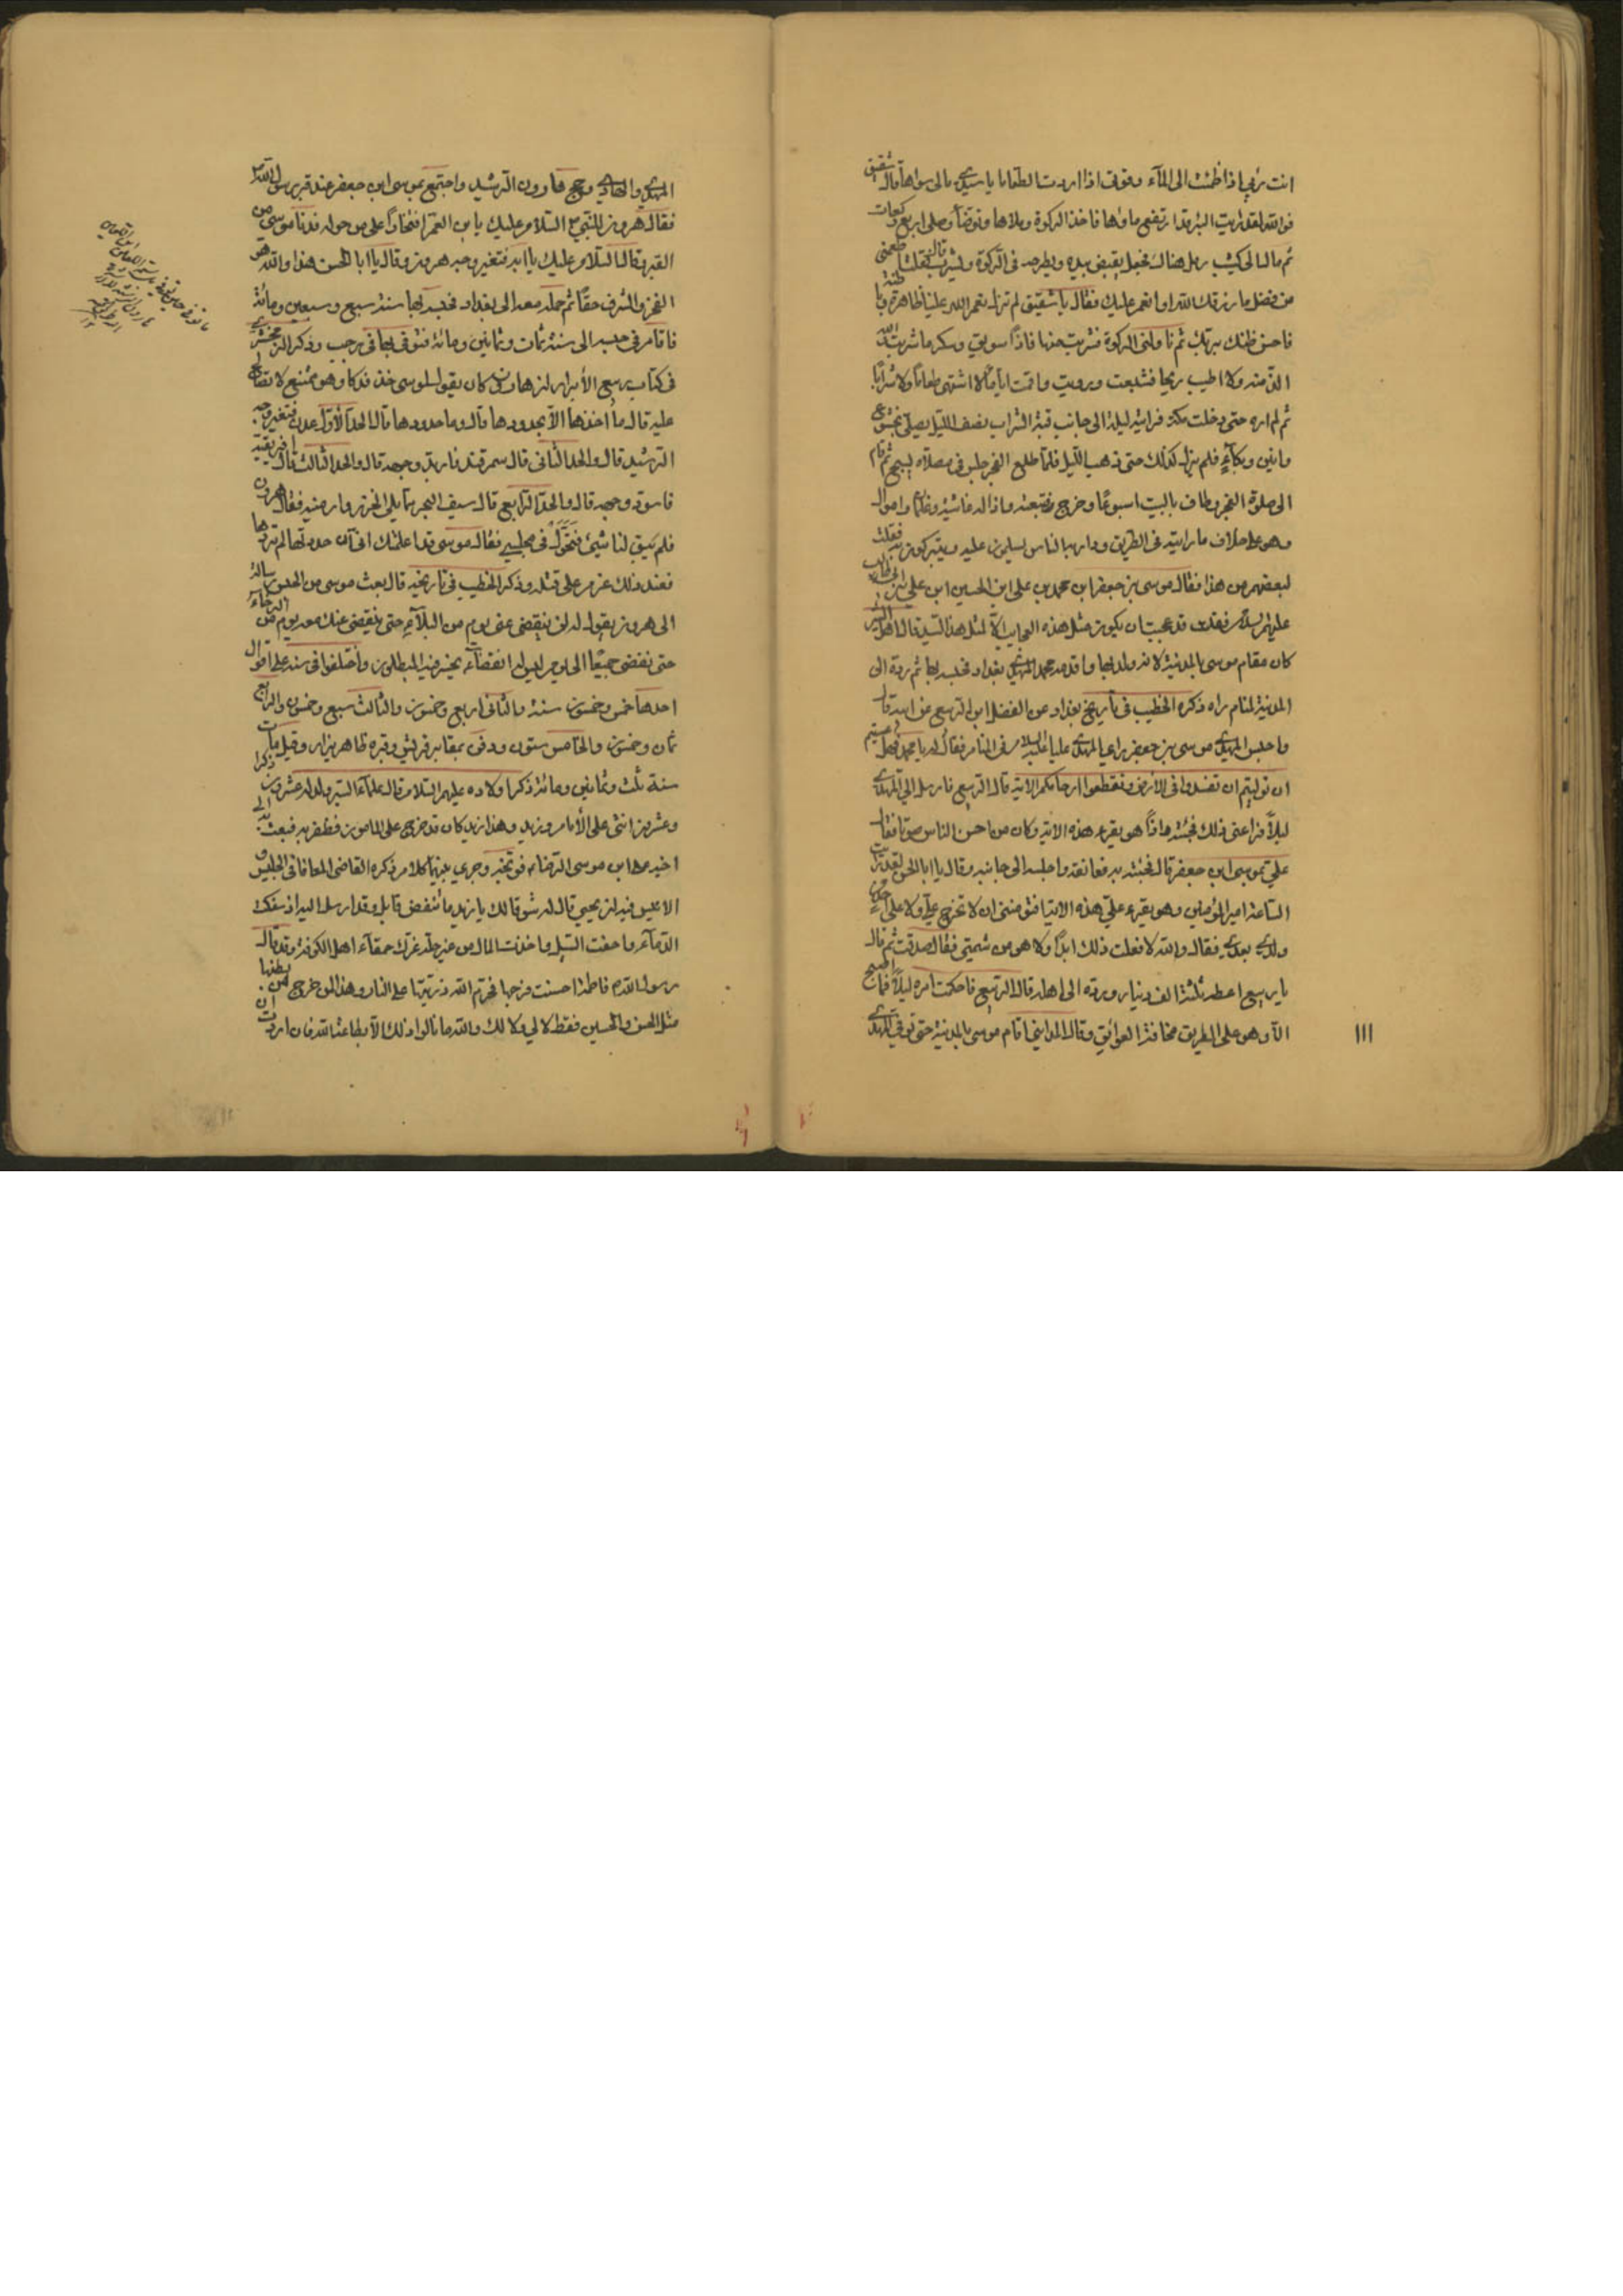 انت ربي اذا ظمئت الى المآء وقوتى اذا اردت الطعاما يا سيدي مالى سواها قال شقيق
فوالله لقد رايت البئر قد ارتفع ماؤها فاخذ الركوة وملاها وتوضأ وصلى اربع ركعات
ثم مال الى كثيب رمل هناك فجعل يقبض بيده ويطرحه فى الركوة ويشرب فقلت اطعمنى
من فضل ما رزقك الله او انعم عليك فقال يا شقيق لم تزل نعم الله علينا ظاهرة وباطنة
فاحسن ظنك بربك ثم ناولنى الركوة فشربت منها فاذا سويق وسكر ما شربت والله
الذ منه ولا اطيب ريحا فشبعت ورويت واقمت اياما لا اشتهى طعاما ولا شرابا
ثم لم اره حتى دخلت مكة فرايته ليلة الى جانب قبة الشراب نصف الليل يصلى بخشوع
وانين وبكآء فلم يزل كذلك حتى ذهب الليل فلما طلع الفجر جلس فى مصلاه يسبح ثم قام
الى صلوة الفجر وطاف بالبيت اسبوعا وخرج فتبعته واذا له غاشية وغلمان واموال
وهو على خلاف ما رايته فى الطريق ودار به الناس يسلمون عليه ويتبركون به فقلت
لبعضهم من هذا فقال موسى بن جعفر ابن محمد بن على ابن الحسين ابن على بن ابى طالب
عليهم السلام فقلت قد عجبت ان يكون مثل هذه العجايب الا لمثل هذا السيد قال اهل السير
كان مقام موسى بالمدينة لانه ولد بها واقدمه محمد المهدي بغداد فحبسه بها ثم رده الى
المدينة لمنام راه ذكره الخطيب فى تاريخ بغداد عن الفضل ابن الربيع عن ابيه قال
لما حبس المهدي موسى بن جعفر راى المهدي عليا عليه السلام فى المنام فقال له يا محمد فهل عسيتم
ان توليتم ان تفسدوا فى الارض وتقطعوا ارحامكم الاية قال الربيع فارسل الي المهدي
ليلاً فراعنى ذلك فجئته فاذا هو يقرء هذه الاية وكان من احسن الناس صوتا فقال
علي بموسى ابن جعفر قال فجئته به فعانقه واجلسه الى جانبه وقال يا ابا الحسن لقد رايت
الساعة امير المؤمنين وهو يقرء علي هذه الاية افتؤمننى ان لا تخرج علي ولا على احد من
ولدي بعدي فقال والله لا فعلت ذلك ابدا ولا هو من شيمتي فقال صدقت ثم قال
يا ربيع اعطه ثلثة الف دينار ورده الى اهله قال الربيع فاحكمت امره ليلا فما اصبح
الا وهو على الطريق مخافة العوائق وقال المدايني اقام موسى بالمدينة حتى توفي المهدي
١١١
المهدي والهادي وحج هارون الرشيد واجتمع بموسى ابن جعفر عند قبر رسول الله
فقال هرون للنبي السلام عليك يا بن العم افتخارا على من حوله فدنا موسى من
القبر وقال السلام عليك يا ابه فتغير وجه هرون وقال يا ابا الحسن هذا والله هو
الفخر والشرف حقا ثم حمله معه الى بغداد فحبسه بها سنة سبع وسبعين ومائة
فاقام فى حبسه الى سنة ثمان وثمانين ومائة فتوفى بها فى رجب وذكر الزمخشري
فى كتاب ربيع الأبرار ان هارون كان يقول لموسى خذ فدكا وهو يمتنع فلما الح
عليه قال ما اخذها الا بحدودها قال وما حدودها قال الحد الأول عدن فتغير وجه
الرشيد قال والحد الثانى قال سمرقند فاربد وجهه قال والحد الثالث قال افريقية
فاسود وجهه قال والحد الرابع قال سيف البحر مما يلى الخزر وارمنيه فقال هرون
فلم يبق لنا شئ فتحول فى مجلسي فقال موسى قد اعلمتك انى ان حددتها لم تردها
فعند ذلك عزم على قتله وذكر الخطيب فى تاريخه قال بعث موسى من الحبس رسالة
الى هرون يقول له لن ينقضى عنى يوم من البلآء حتى ينقضى عنك معه يوم من الرخآء
حتى نقضى جميعا الى يوم ليس له انقضآء يخسر فيه المبطلون واختلفوا فى سنه على اقوال
احدها خمس وخمسون سنة والثانى اربع وخمسون والثالث سبع وخمسون والرابع
ثمان وخمسون والخامس ستون ودفن بمقابر قريش وقبره ظاهر يزار وقيل مات
سنة ثلث وثمانين ومائة ذكر اولاده عليهم السلام قال علمآء السير وله عشرون ذكرا
وعشرون انثى على الأمام وزيد وهذا زيد كان قد خرج على المامون فظفر به فبعث به الى
اخيه على ابن موسى الرضا فوبخه وجرى بينهما كلام ذكره القاضى المعافا فى الجليس و
الانيس فيه ان يحيى قال له سؤة لك يا زيد ما انت قايل لرسول الله اذ سفكت
الدمآء واخفت السبل واخذت المال من غير حله غرك حمقآء اهل الكوفة وقد قال
رسول الله ان فاطمة احصنت فرجها فحرم الله ذريتها على النار وهذا لمن خرج من بطنها
مثل الحسن والحسين فقط لا لي ولا لك والله ما نالوا ذلك الا بطاعة الله فان اردت ان